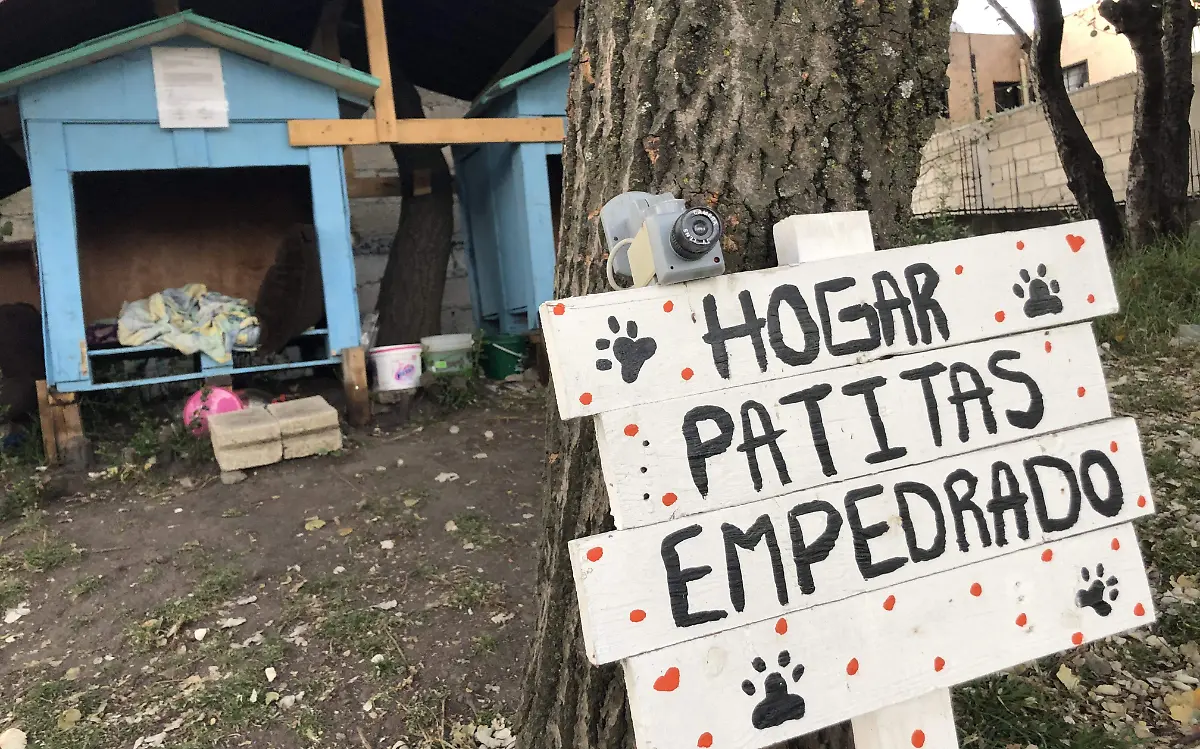 HOGAR
PATITAS
EMPEDRADO